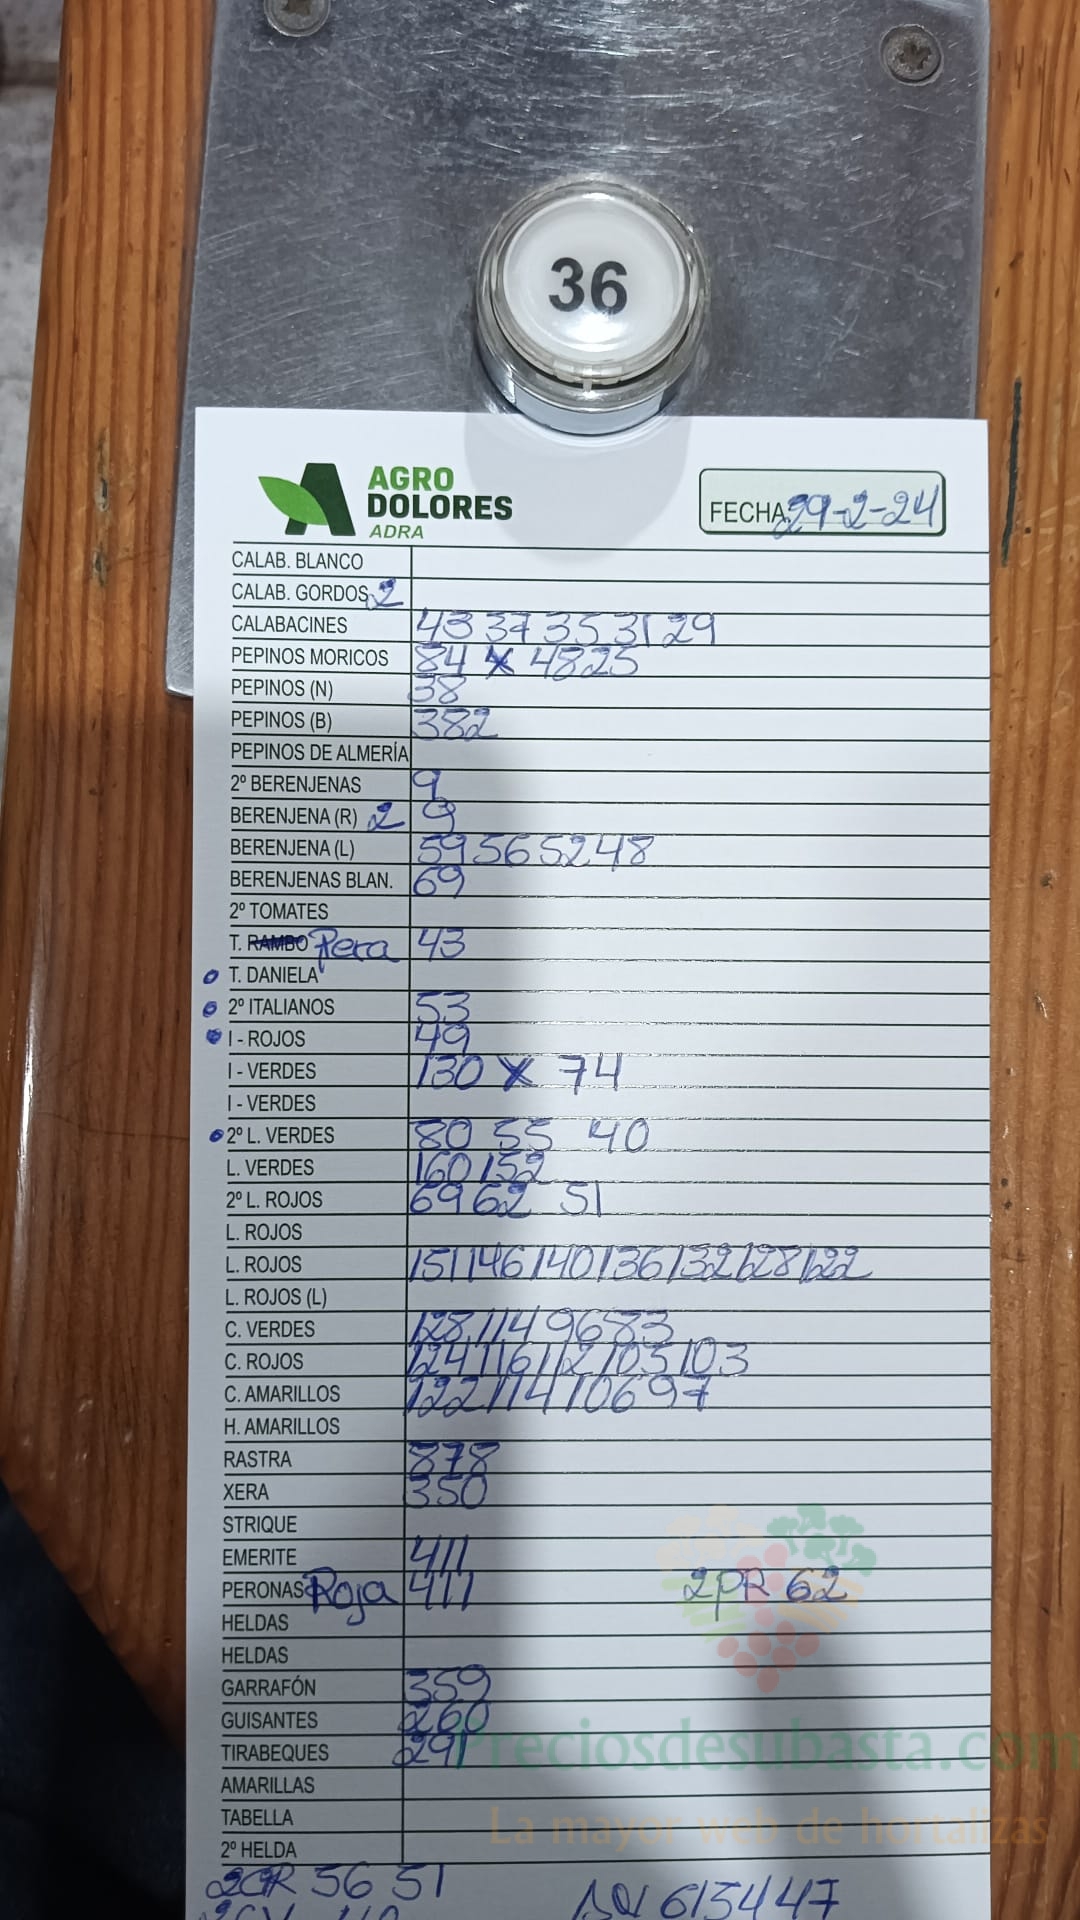 36
AGRO
DOLORES
ADRA
FECHA 29-2-24
CALAB. BLANCO
CALAB. GORDOS 2
CALABACINES 43 37 35 31 29
PEPINOS MORICOS 84 x 48 25
PEPINOS (N) 38
PEPINOS (B) 382
PEPINOS DE ALMERÍA
2º BERENJENAS 9
BERENJENA (R) 2 9
BERENJENA (L) 59 56 52 48
BERENJENAS BLAN. 69
2º TOMATES
T. RAMBO Pera 43
T. DANIELA
2º ITALIANOS 53
I - ROJOS 49
I - VERDES 130 x 74
I - VERDES
2º L. VERDES 80 55 40
L. VERDES 160 152
2º L. ROJOS 69 62 51
L. ROJOS
L. ROJOS 151 146 140 136 132 128 122
L. ROJOS (L)
C. VERDES 128 114 96 83
C. ROJOS 124 116 112 105 103
C. AMARILLOS 122 114 106 97
H. AMARILLOS
RASTRA 878
XERA 350
STRIQUE
EMERITE 411
PERONAS Roja 411 2PR 62
HELDAS
HELDAS
GARRAFÓN 359
GUISANTES 260
TIRABEQUES 291
AMARILLAS
TABELLA
2º HELDA
2CR 56 51
61 54 47
Preciosdesubasta.com
La mayor web de hortalizas